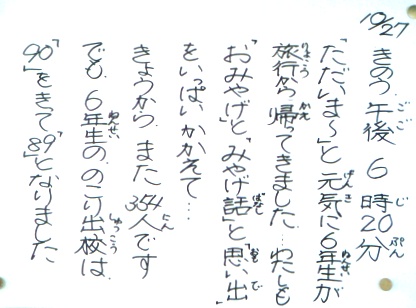 10/27
きのう 午後 6時20分
「ただいま〜」と 元気に6年生が
旅行から 帰ってきました…わたしも
「おみやげ」と「みやげ話」と「思い出」
を いっぱい かかえて…
きょうから また 354人です
でも 6年生の のこり出校は
「90」をきって「89」となりました